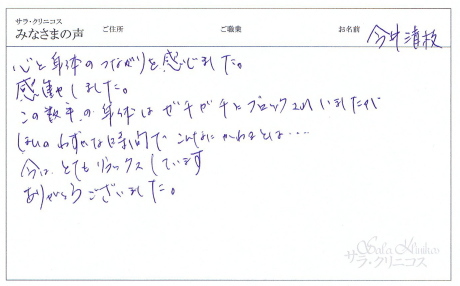 サラ・クリニコス
みなさまの声 ご住所 ご職業 お名前 今井清枝
心と身体のつながりを感じました。
感謝しました。
この数年の身体はガチガチとブロックされいましたが
ほんのわずかな時間でこんなにかわるとは・・・
今は、とてもリラックスしています
ありがとうございました。
Sala Klinikos
サラ・クリニコス